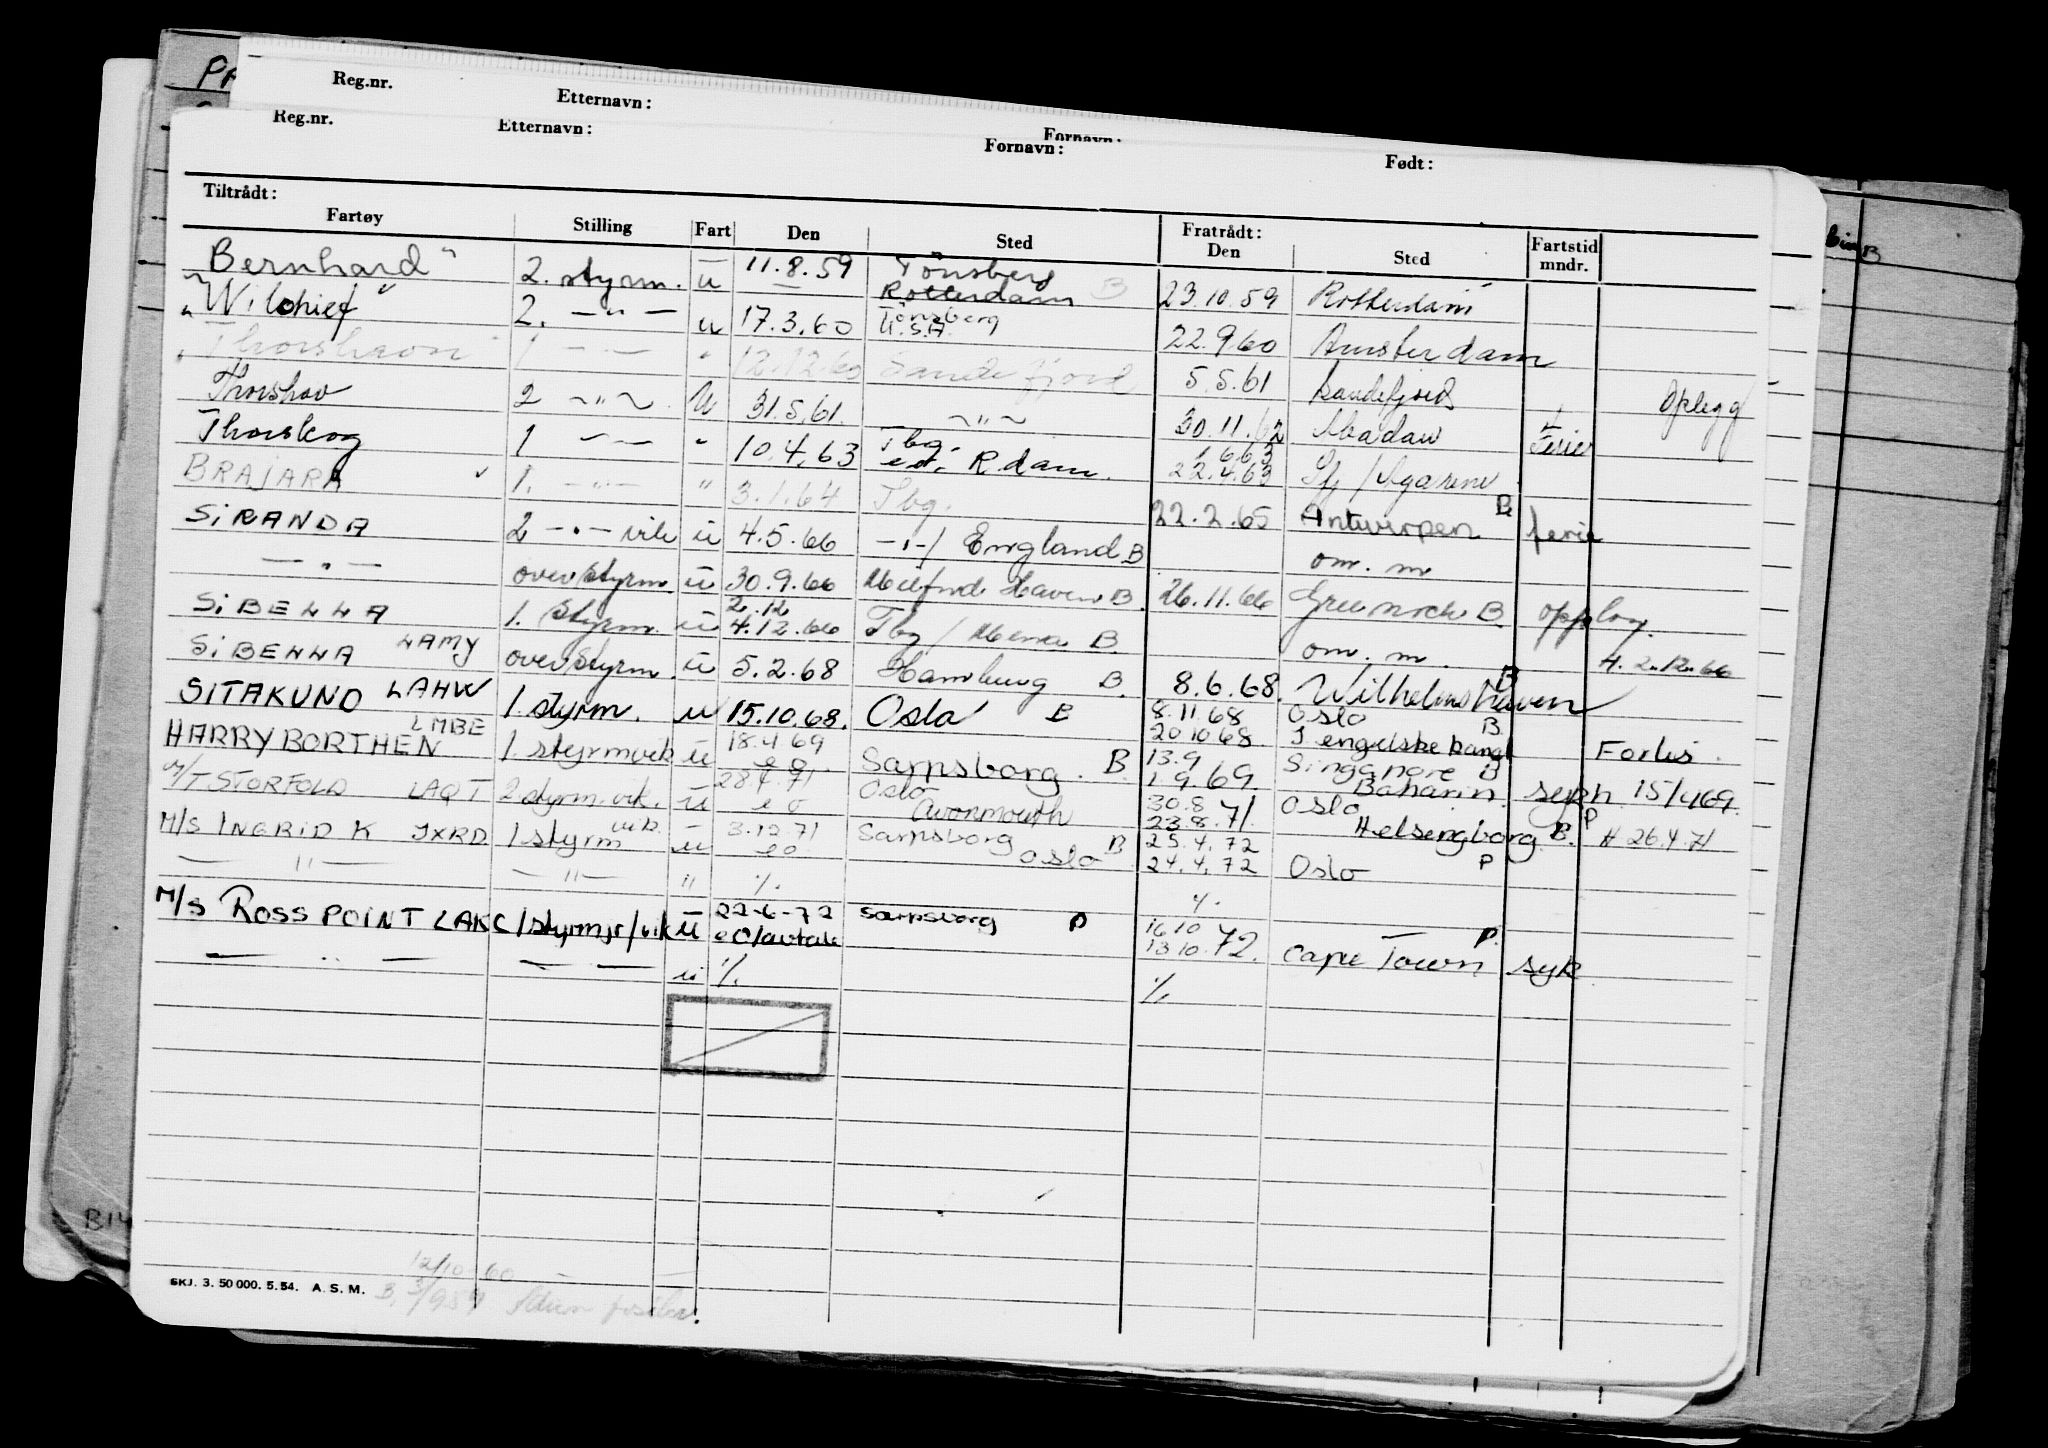 Reg.nr. Etternavn: Fornavn:
Reg.nr. Etternavn: Fornavn: Født:
Tiltrådt: Fratrådt:
Fartøy Stilling Fart Den Sted Den Sted Fartstid mndr.
Bernhard" 2. styrm. ü 11.8.59 Tönsberg Rotterdam B 23.10.59 Rotterdam
"Wilchief" 2. —"— u 17.3.60 Tönsberg U.S.A. 22.9.60 Amsterdam
"Thorshavn" 1 —"— " 12.12.60 Sandefjord 5.5.61 Sandefjord Oplegg
Thorshov 2 ~"~ U 31.5.61. ~"~ 30.11.62 Abadan Ferie
Thorskog 1 —"— " 10.4.63 Tbg. R.dam. 1.6.63 22.4.63 Sfj /
BRAJARA 1. —"— " 3.1.64 Tbg. 22.2.65 Antwerpen B ferie
SiRANDA 2 —"— vik ü 4.5.66 —"—/ England B om. m
—"— overstyrm. ü 30.9.66 Milford Haven B. 26.11.66 Greenock B opplag.
SiBELLA 1. styrm. ü 2.12 4.12.66 Tbg / Mena B om. m. H. 2.12.66
SiBELLA LAMY overstyrm. ü 5.2.68 Hamburg B. 8.6.68. Wilhelmshaven B
SITAKUND LAHW 1 styrm. u 15.10.68. Oslo B 8.11.68 Oslo 20 10 68 I engelske kanal B Forlis.
HARRY BORTHEN LMBE 1 styrm vik ü 18.4 69 e o Sarpsborg. B 13.9 1.9.69. Singapore B Baharin. sykh 15/4 69.
M/T STORFOLD LAQT 2 styrm. vik. ü 28.4.71 e o Oslo Avonmouth 30.8 23.8.71. Oslo P Helsengborg B. H 26.4.71
M/S INGRID K JXRD 1 styrm vik. ü 3.12.71 e o Sarpsborg B Oslo 25.4.72 24.4.72 Oslo P
— " — — " — " ./. ./.
M/S ROSS POINT LAKC 1 styrm jr/vik ü 22-6-72 e O/avtale Sarpsborg P 16 10 13 10.72. — P. Cape Town syk
— " — — — ü ./. ./.
SKJ. 3. 50 000. 5. 54. A. S. M.
12/10-60
B.
B14